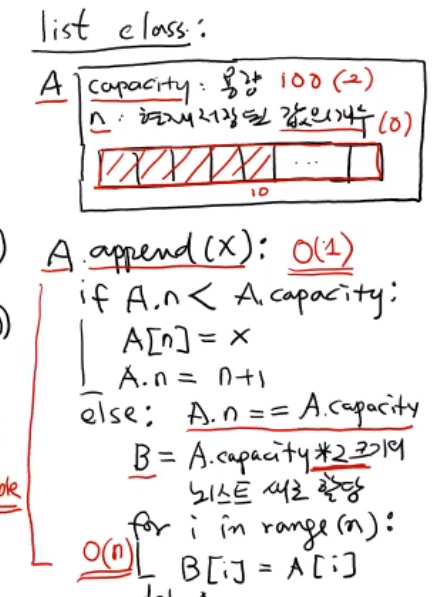 list class:
A capacity: 용량 100 (2)
n: 현재 저장된 값의 개수 (0)
...
10
A.append(x): O(1)
if A.n < A.capacity:
A[n] = x
A.n = n+1
else: A.n == A.capacity
B = A.capacity*2 크기의
리스트 새로 할당
for i in range(n):
O(n) B[i] = A[i]